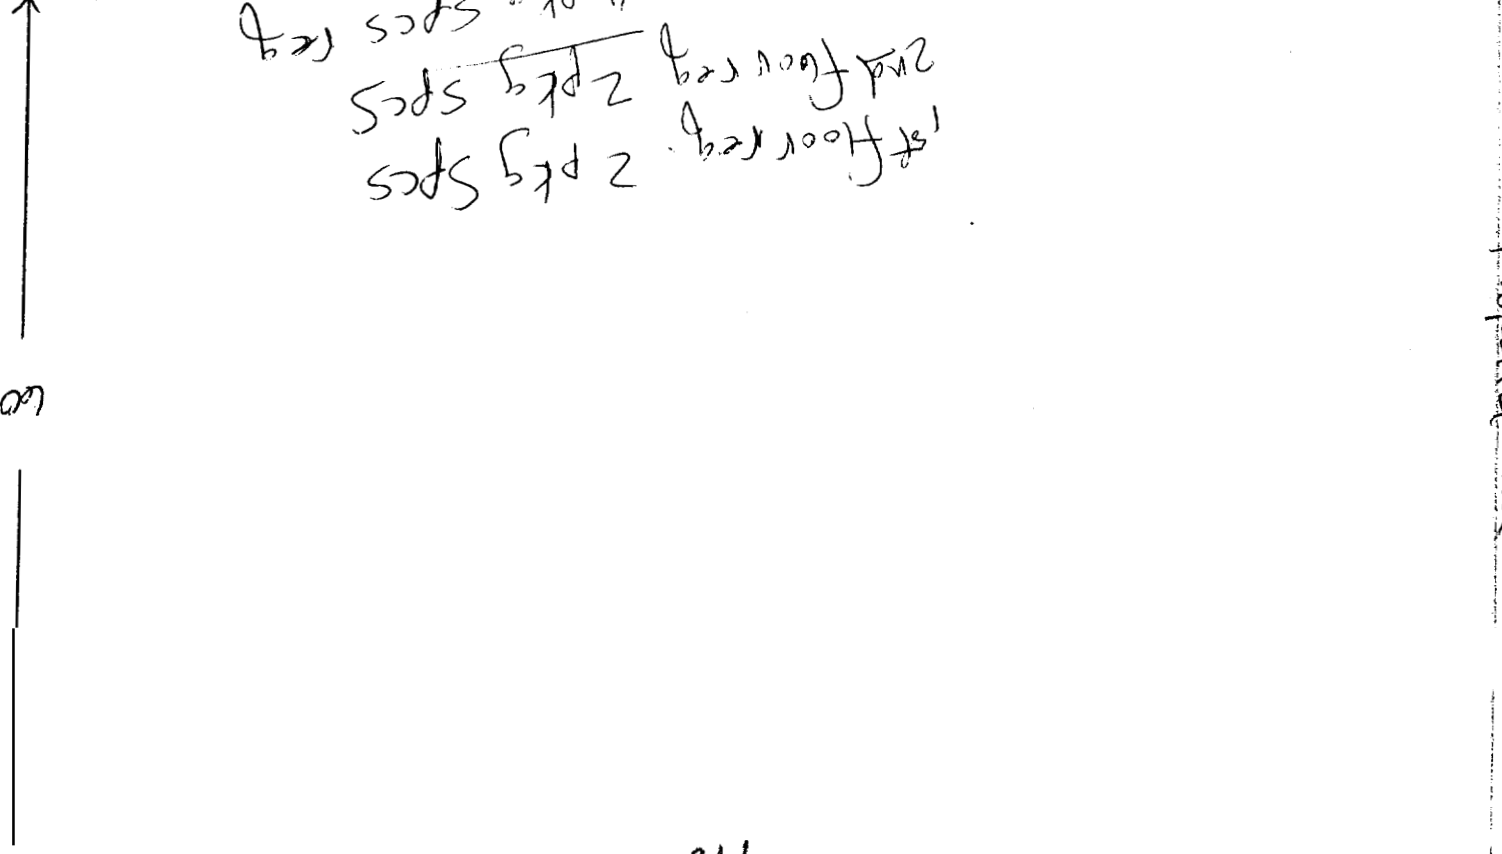 1st floor req. 2 pkg spcs
2nd floor req 2 pkg spcs
spcs req